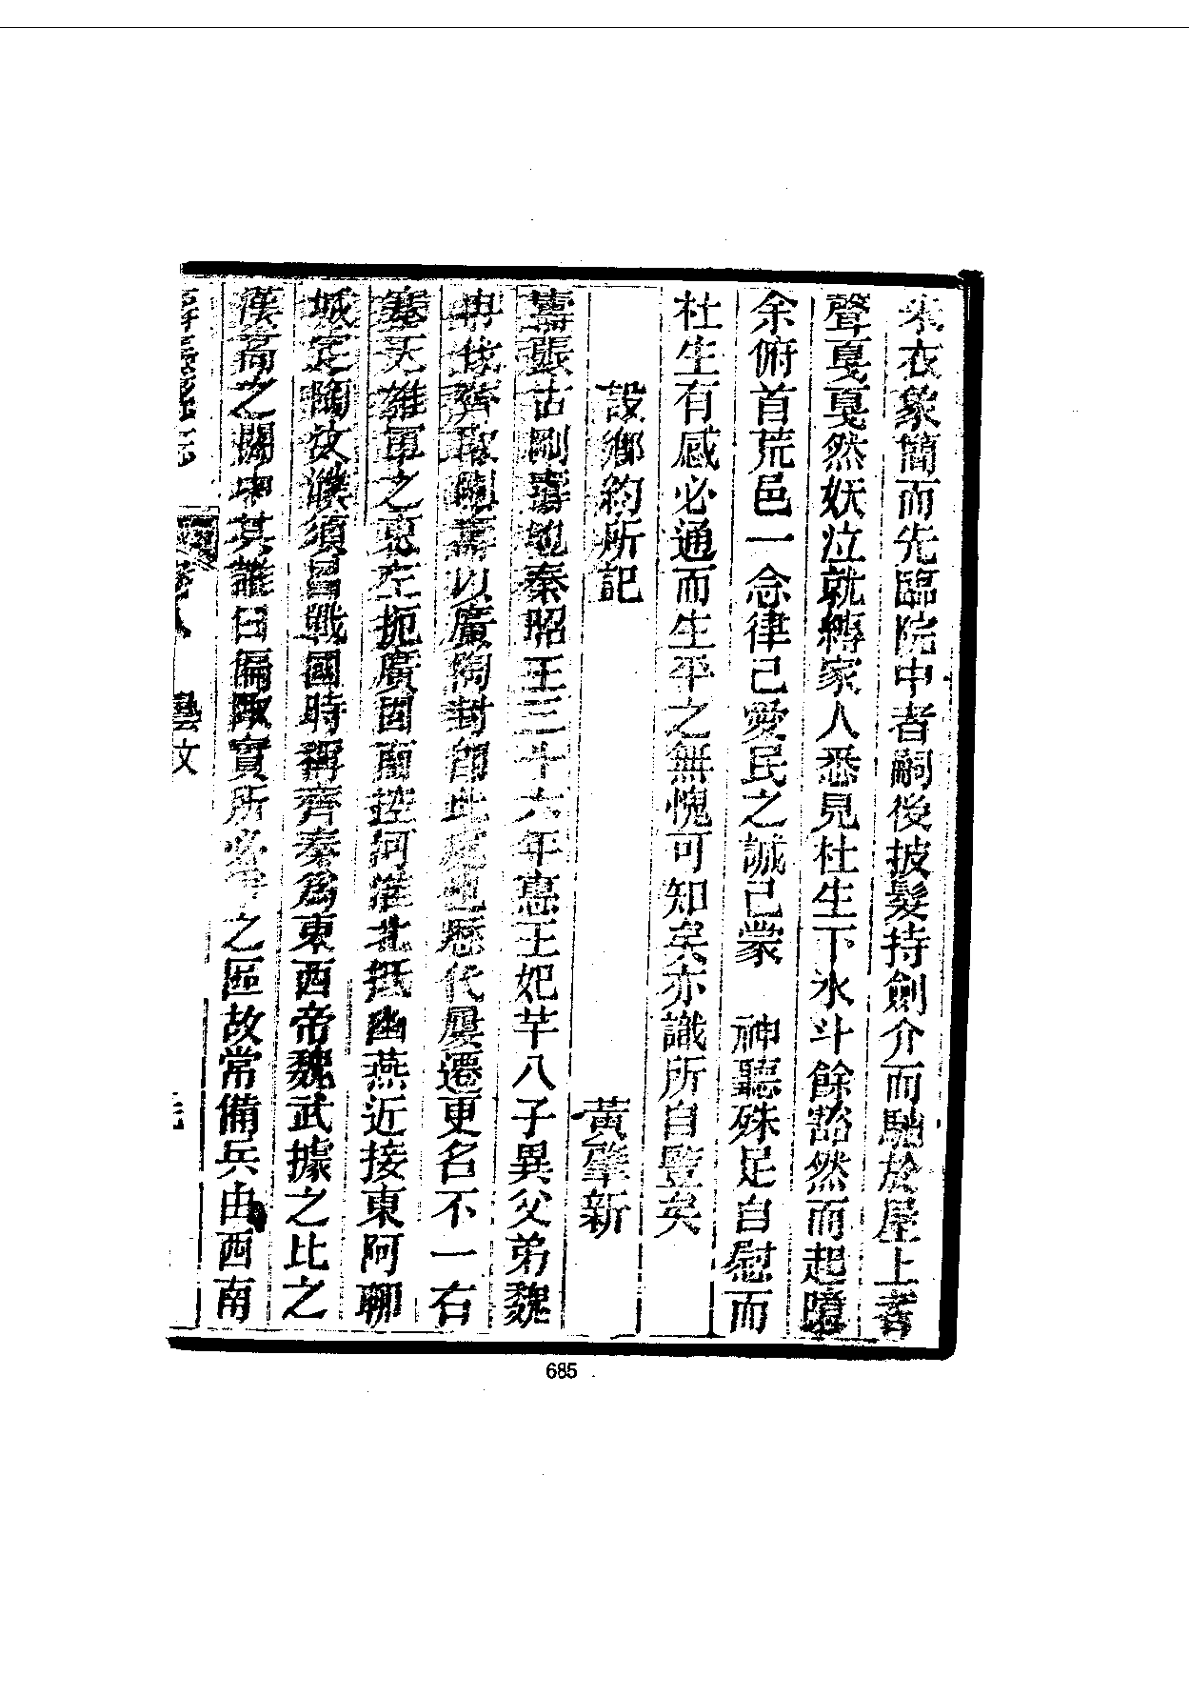 朱衣象簡而先臨院中者嗣後披髮持劍介而馳於屋上者
聲戛戛然妖泣就縛家人悉見杜生下氷斗餘豁然而起噫
余俯首荒邑一念律己愛民之誠己蒙　神聽殊足自慰而
杜生有感必通而生平之無愧可知矣亦識所自鑒矣
設鄉約所記　黃肇新
壽張古剛壽地秦昭王三十六年惠王妃芊八子異父弟魏
冉伐齊取剛壽以廣陶封即此處也歷代屢遷更名不一右
塞天雄軍之東左扼廣固南控河淮北抵幽燕近接東阿聊
城定陶故濮須昌戰國時稱齊秦爲東西帝魏武據之比之
漢高之關中其誰曰偏陬實所必之區故常備兵由西南
壽張縣志　卷八　藝文
685